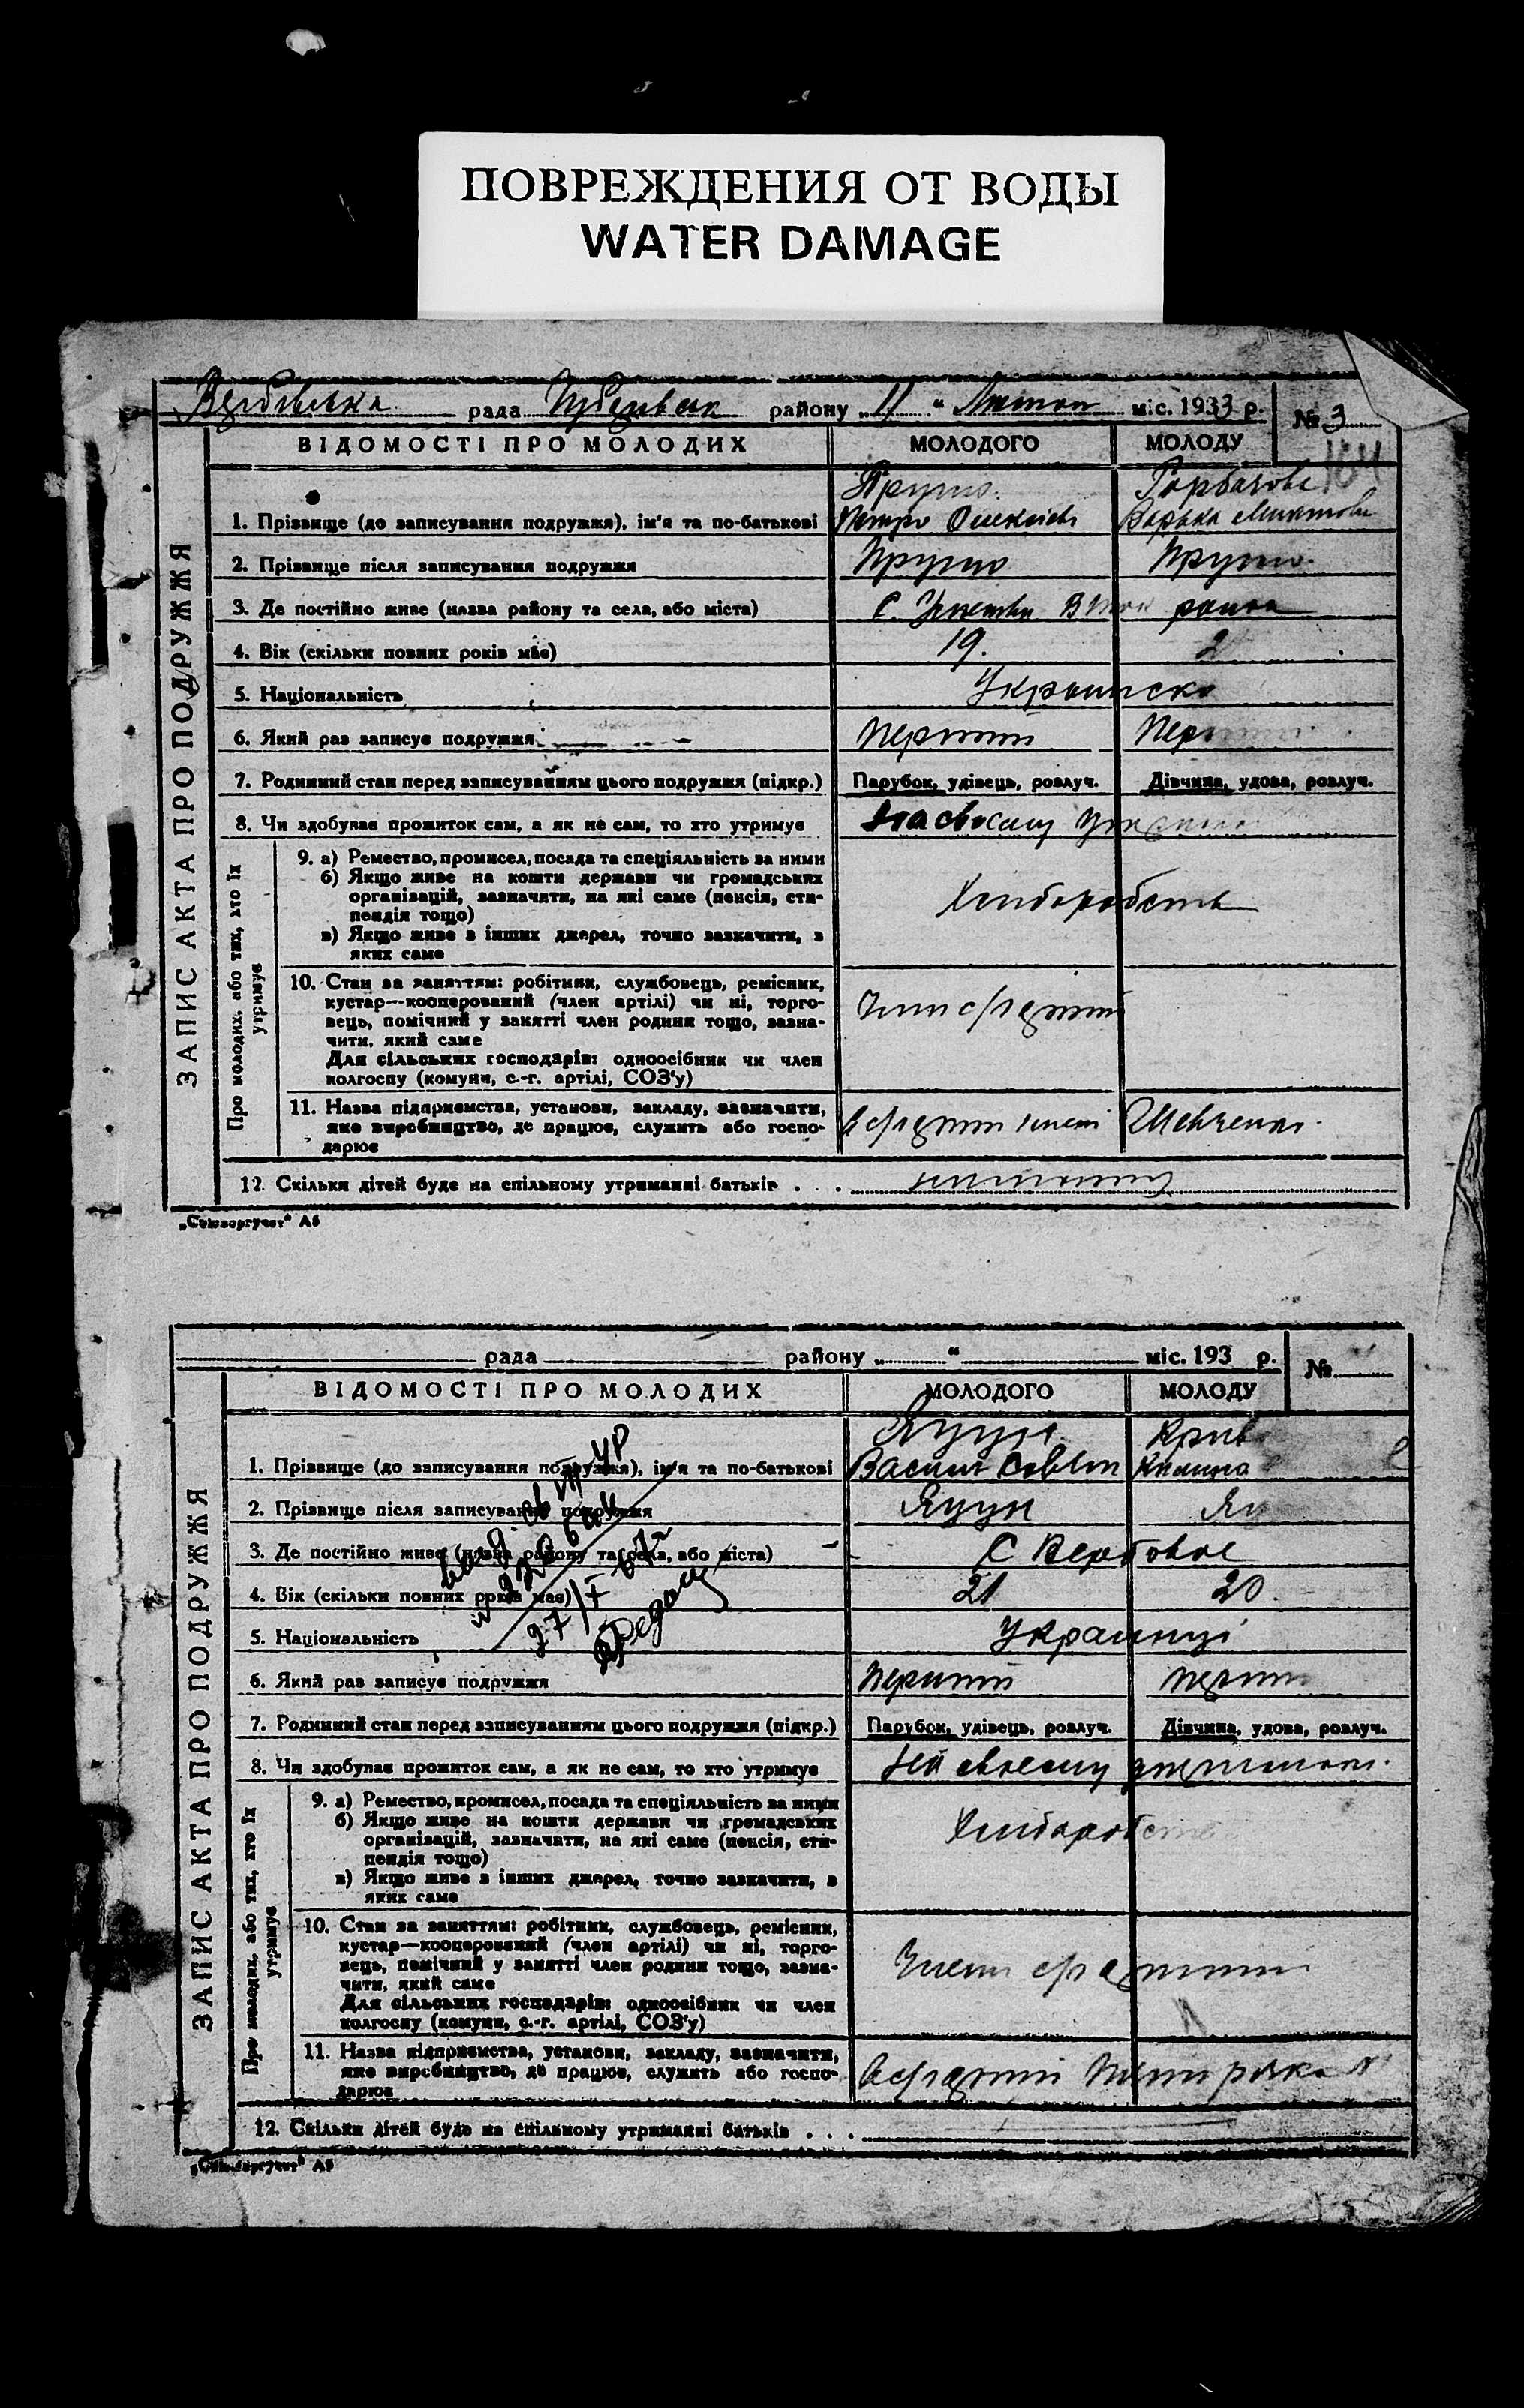 ПОВРЕЖДЕНИЯ ОТ ВОДЫ
WATER DAMAGE
рада району „11“ міс. 1933 р.
№ 3
164
ЗАПИС АКТА ПРО ПОДРУЖЖЯ
ВІДОМОСТІ ПРО МОЛОДИХ МОЛОДОГО МОЛОДУ
1. Прізвище (до записування подружжя), ім'я та по-батькові Петро
2. Прізвище після записування подружжя
3. Де постійно живе (назва району та села, або міста) С.
4. Вік (скільки повних років має) 19. 2
5. Національність
6. Який раз записує подружжя Перший
7. Родинний стан перед записуванням цього подружжя (підкр.) Парубок, удівець, розлуч. Дівчина, удова, розлуч.
8. Чи здобував прожиток сам, а як не сам, то хто утримує На своєму
Про молодих, або тих, хто їх утримує
9. а) Ремество, промисел, посада та спеціяльність за ними
б) Якщо живе на кошти держави чи громадських
організацій, зазначити, на які саме (пенсія, сти-
пендія тощо)
в) Якщо живе з інших джерел, точно зазначити, з
яких саме
Хліборобств
10. Стан за заняттям: робітник, службовець, ремісник,
кустар—кооперований (член артілі) чи ні, торго-
вець, помічний у занятті член родини тощо, зазна-
чити, який саме
Для сільських господарів: одноосібник чи член
колгоспу (комуни, с.-г. артілі, СОЗ'у)
11. Назва підприємства, установи, закладу, зазначити,
яке виробництво, де працює, служить або госпо-
дарює
12. Скільки дітей буде на спільному утриманні батьків . . .
„Союзоргучет“ А5
рада району „ “ міс. 193 р.
№
ЗАПИС АКТА ПРО ПОДРУЖЖЯ
ВІДОМОСТІ ПРО МОЛОДИХ МОЛОДОГО МОЛОДУ
1. Прізвище (до записування подружжя), ім'я та по-батькові Яцун Крив
2. Прізвище після записування подружжя Яцун Яц
3. Де постійно живе (назва району та села, або міста) С Вербовое
4. Вік (скільки повних років має) 21 20.
5. Національність Украинці
6. Який раз записує подружжя Перший перши
7. Родинний стан перед записуванням цього подружжя (підкр.) Парубок, удівець, розлуч. Дівчина, удова, розлуч.
8. Чи здобував прожиток сам, а як не сам, то хто утримує На своєму
Про молодих, або тих, хто їх утримує
9. а) Ремество, промисел, посада та спеціяльність за ними
б) Якщо живе на кошти держави чи громадських
організацій, зазначити, на які саме (пенсія, сти-
пендія тощо)
в) Якщо живе з інших джерел, точно зазначити, з
яких саме
Хліборобств
10. Стан за заняттям: робітник, службовець, ремісник,
кустар—кооперований (член артілі) чи ні, торго-
вець, помічний у занятті член родини тощо, зазна-
чити, який саме
Для сільських господарів: одноосібник чи член
колгоспу (комуни, с.-г. артілі, СОЗ'у)
11. Назва підприємства, установи, закладу, зазначити,
яке виробництво, де працює, служить або госпо-
дарює
12. Скільки дітей буде на спільному утриманні батьків . . .
„Союзоргучет“ А5